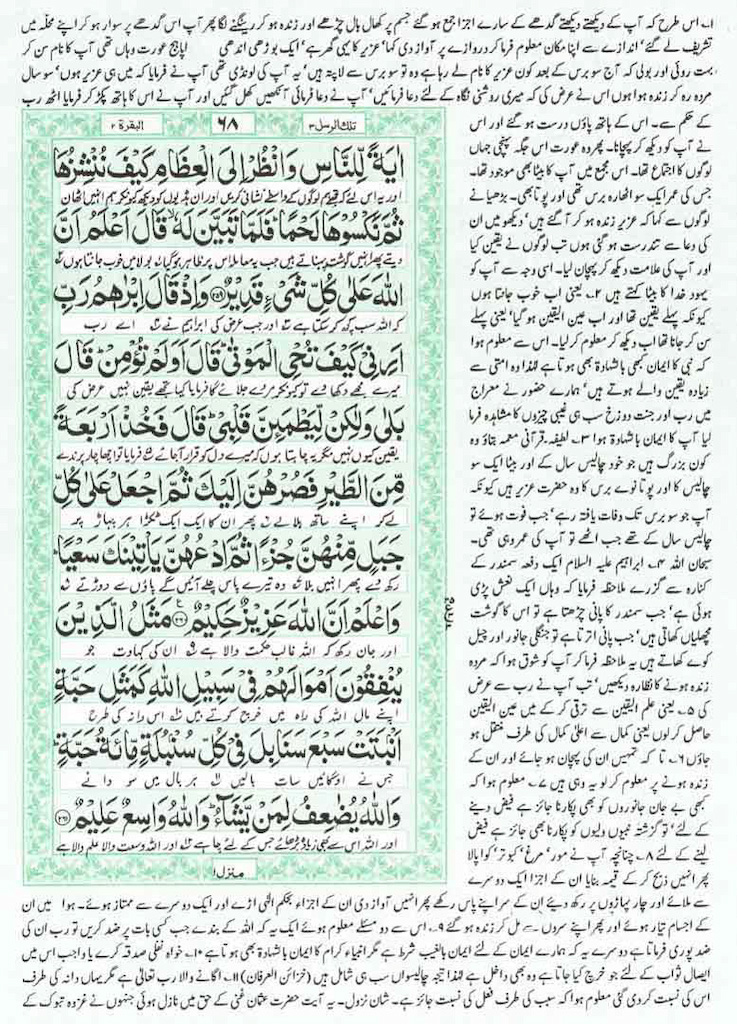 ۱۔ اس طرح کہ آپ کے دیکھتے دیکھتے گدھے کے سارے اجزا جمع ہو گئے جسم پر کھال بال چڑھے اور زندہ ہو کر رینگنے لگا پھر آپ اس گدھے پر سوار ہو کر اپنے محلہ میں
تشریف لے گئے' اندازے سے اپنا مکان معلوم فرما کر دروازے پر آواز دی کہا' عزیر کا یہی گھر ہے' ایک بوڑھی اندھی اپاہج عورت وہاں تھی آپ کا نام سن کر
بہت روئی اور بولی کہ آج سو برس کے بعد کون عزیر کا نام لے رہا ہے وہ تو سو برس سے لاپتہ ہیں' آپ نے فرمایا کہ میں ہی عزیر ہوں' سو سال
مردہ رہ کر زندہ ہوا ہوں اس نے عرض کی کہ میری روشنی نگاہ کے لئے دعا فرمائیں' آپ نے دعا فرمائی آنکھیں کھل گئیں اور آپ نے اس کا ہاتھ پکڑ کر فرمایا اٹھ رب
تلك الرسل ۳
۶۸
البقرة ۲
اٰيَةً لِّلنَّاسِ وَانْظُرْ اِلَى الْعِظَامِ كَيْفَ نُنْشِزُهَا
اور یہ اس لئے کہ تجھے ہم لوگوں کے واسطے نشانی کریں اور ان ہڈیوں کو دیکھ کیونکر ہم انہیں اٹھان
ثُمَّ نَكْسُوْهَا لَحْمًا ؕ فَلَمَّا تَبَيَّنَ لَهٗ ۙ قَالَ اَعْلَمُ اَنَّ
دیتے پھر انہیں گوشت پہناتے ہیں جب یہ معاملہ اس پر ظاہر ہو گیا بولا میں خوب جانتا ہوں
اللّٰهَ عَلٰى كُلِّ شَيْءٍ قَدِيْرٌ ﴿۲۵۹﴾ وَاِذْ قَالَ اِبْرٰهٖمُ رَبِّ
کہ اللہ سب کچھ کر سکتا ہے اور جب عرض کی ابراہیم نے اے رب
اَرِنِيْ كَيْفَ تُحْيِ الْمَوْتٰى ؕ قَالَ اَوَلَمْ تُؤْمِنْ ؕ قَالَ
میرے مجھے دکھا دے تو کیونکر مردے جلائے گا فرمایا کیا تجھے یقین نہیں عرض کی
بَلٰى وَلٰكِنْ لِّيَطْمَئِنَّ قَلْبِيْ ؕ قَالَ فَخُذْ اَرْبَعَةً
یقین کیوں نہیں مگر یہ چاہتا ہوں کہ میرے دل کو قرار آجائے فرمایا تو اچھا چار پرندے
مِّنَ الطَّيْرِ فَصُرْهُنَّ اِلَيْكَ ثُمَّ اجْعَلْ عَلٰى كُلِّ
لے کر اپنے ساتھ ہلا لے پھر ان کا ایک ایک ٹکڑا ہر پہاڑ پر
جَبَلٍ مِّنْهُنَّ جُزْءًا ثُمَّ ادْعُهُنَّ يَاْتِيْنَكَ سَعْيًا ؕ
رکھ دے پھر انہیں بلا وہ تیرے پاس چلے آئیں گے پاؤں سے دوڑتے
وَاعْلَمْ اَنَّ اللّٰهَ عَزِيْزٌ حَكِيْمٌ ﴿۲۶۰﴾ مَثَلُ الَّذِيْنَ
اور جان رکھ کہ اللہ غالب حکمت والا ہے ان کی کہاوت جو
يُنْفِقُوْنَ اَمْوَالَهُمْ فِيْ سَبِيْلِ اللّٰهِ كَمَثَلِ حَبَّةٍ
اپنے مال اللہ کی راہ میں خرچ کرتے ہیں اس دانہ کی طرح
اَنْۢبَتَتْ سَبْعَ سَنَابِلَ فِيْ كُلِّ سُنْۢبُلَةٍ مِّائَةُ حَبَّةٍ ؕ
جس نے اوگائیں سات بالیں ہر بال میں سو دانے
وَاللّٰهُ يُضٰعِفُ لِمَنْ يَّشَآءُ ؕ وَاللّٰهُ وَاسِعٌ عَلِيْمٌ ﴿۲۶۱﴾
اور اللہ اس سے بھی زیادہ بڑھائے جس کے لئے چاہے اور اللہ وسعت والا علم والا ہے
منزل ۱
کے حکم سے۔ اس کے ہاتھ پاؤں درست ہو گئے اور اس
نے آپ کو دیکھ کر پہچانا۔ پھر وہ عورت اس جگہ پہنچی جہاں
لوگوں کا اجتماع تھا۔ اس مجمع میں آپ کا بیٹا بھی موجود تھا۔
جس کی عمر ایک سو اٹھارہ برس تھی اور پوتا بھی۔ بڑھیا نے
لوگوں سے کہا کہ عزیر زندہ ہو کر آ گئے ہیں' دیکھو میں ان
کی دعا سے تندرست ہو گئی ہوں تب لوگوں نے یقین کیا
اور آپ کی علامت دیکھ کر پہچان لیا۔ اسی وجہ سے آپ کو
یہود خدا کا بیٹا کہتے ہیں ۲۔ یعنی اب خوب جانتا ہوں
کیونکہ پہلے یقین تھا اور اب عین الیقین ہو گیا' یعنی پہلے
سن کر جانا تھا اب دیکھ کر معلوم کر لیا۔ اس سے معلوم ہوا
کہ نبی کا ایمان کبھی بالشہادۃ بھی ہوتا ہے لہذا وہ امتی سے
زیادہ یقین والے ہوتے ہیں' ہمارے حضور نے معراج
میں رب اور جنت دوزخ سب ہی غیبی چیزوں کا مشاہدہ فرما
لیا آپ کا ایمان بالشہادۃ ہوا ۳۔ لطیفہ۔ قرآنی معمہ بتاؤ وہ
کون بزرگ ہیں جو خود چالیس سال کے اور بیٹا ایک سو
چالیس کا اور پوتا نوے برس کا وہ حضرت عزیر ہیں کیونکہ
آپ جو سو برس تک وفات یافتہ رہے' جب فوت ہوئے تو
چالیس سال کے تھے جب اٹھے تو آپ کی عمر وہی تھی۔
سبحان اللہ ۴۔ ابراہیم علیہ السلام ایک دفعہ سمندر کے
کنارہ سے گزرے ملاحظہ فرمایا کہ وہاں ایک نعش پڑی
ہوئی ہے' جب سمندر کا پانی چڑھتا ہے تو اس کا گوشت
مچھلیاں کھاتی ہیں' جب پانی اترتا ہے تو جنگلی جانور اور چیل
کوے کھاتے ہیں یہ ملاحظہ فرما کر آپ کو شوق ہوا کہ مردہ
زندہ ہونے کا نظارہ دیکھیں' تب آپ نے رب سے عرض
کی ۵۔ یعنی علم الیقین سے ترقی کر کے میں عین الیقین
حاصل کر لوں یعنی کمال سے اعلیٰ کمال کی طرف منتقل ہو
جاؤں ۶۔ تا کہ تمہیں ان کی پہچان ہو جائے اور ان کے
زندہ ہونے پر معلوم کر لو یہ وہی ہیں ۷۔ معلوم ہوا کہ
کبھی بے جان جانوروں کو بھی پکارنا جائز ہے فیض دینے
کے لئے' تو گزشتہ نبیوں ولیوں کو پکارنا بھی جائز ہے فیض
لینے کے لئے ۸۔ چنانچہ آپ نے مور' مرغ' کبوتر' کوا پالا
پھر انہیں ذبح کر کے قیمہ بنایا ان کے اجزا ایک دوسرے
سے ملائے اور چار پہاڑوں پر رکھ دیئے ان کے سر اپنے پاس رکھے پھر انہیں آواز دی ان کے اجزاء بحکم الٰہی اڑے اور ایک دوسرے سے ممتاز ہوئے۔ ہوا میں ان
کے اجسام تیار ہوئے اور پھر اپنے سروں سے مل کر زندہ ہو گئے ۹۔ اس سے دو مسئلے معلوم ہوئے ایک یہ کہ اللہ کے بندے جب کسی بات پر ضد کریں تو رب ان کی
ضد پوری فرماتا ہے دوسرے یہ کہ ہمارے ایمان کے لئے ایمان بالغیب شرط ہے مگر انبیاء کرام کا ایمان بالشہادۃ بھی ہوتا ہے ۱۰۔ خواہ نفلی صدقہ کرے یا واجب اس میں
ایصال ثواب کے لئے جو خرچ کیا جاتا ہے وہ بھی داخل ہے لہذا تیجہ چالیسواں سب ہی شامل ہیں (خزائن العرفان) ۱۱۔ اگانے والا رب تعالیٰ ہے مگر یہاں دانہ کی طرف
اس کی نسبت کر دی گئی معلوم ہوا کہ سبب کی طرف فعل کی نسبت جائز ہے۔ شان نزول۔ یہ آیت حضرت عثمان غنی کے حق میں نازل ہوئی جنہوں نے غزوہ تبوک کے